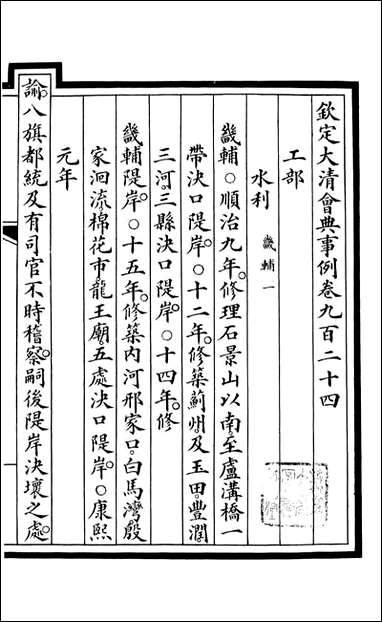 欽定大清會典事例卷九百二十四
工部
水利 畿輔一
畿輔○順治九年修理石景山以南至盧溝橋一
帶決口隄岸○十二年修築薊州及玉田豐潤
三河三縣決口隄岸○十四年修
畿輔隄岸○十五年修築內河邢家口白馬灣殷
家洄流棉花市龍王廟五處決口隄岸○康熙
元年
諭八旗都統及有司官不時稽察嗣後隄岸決壞之處